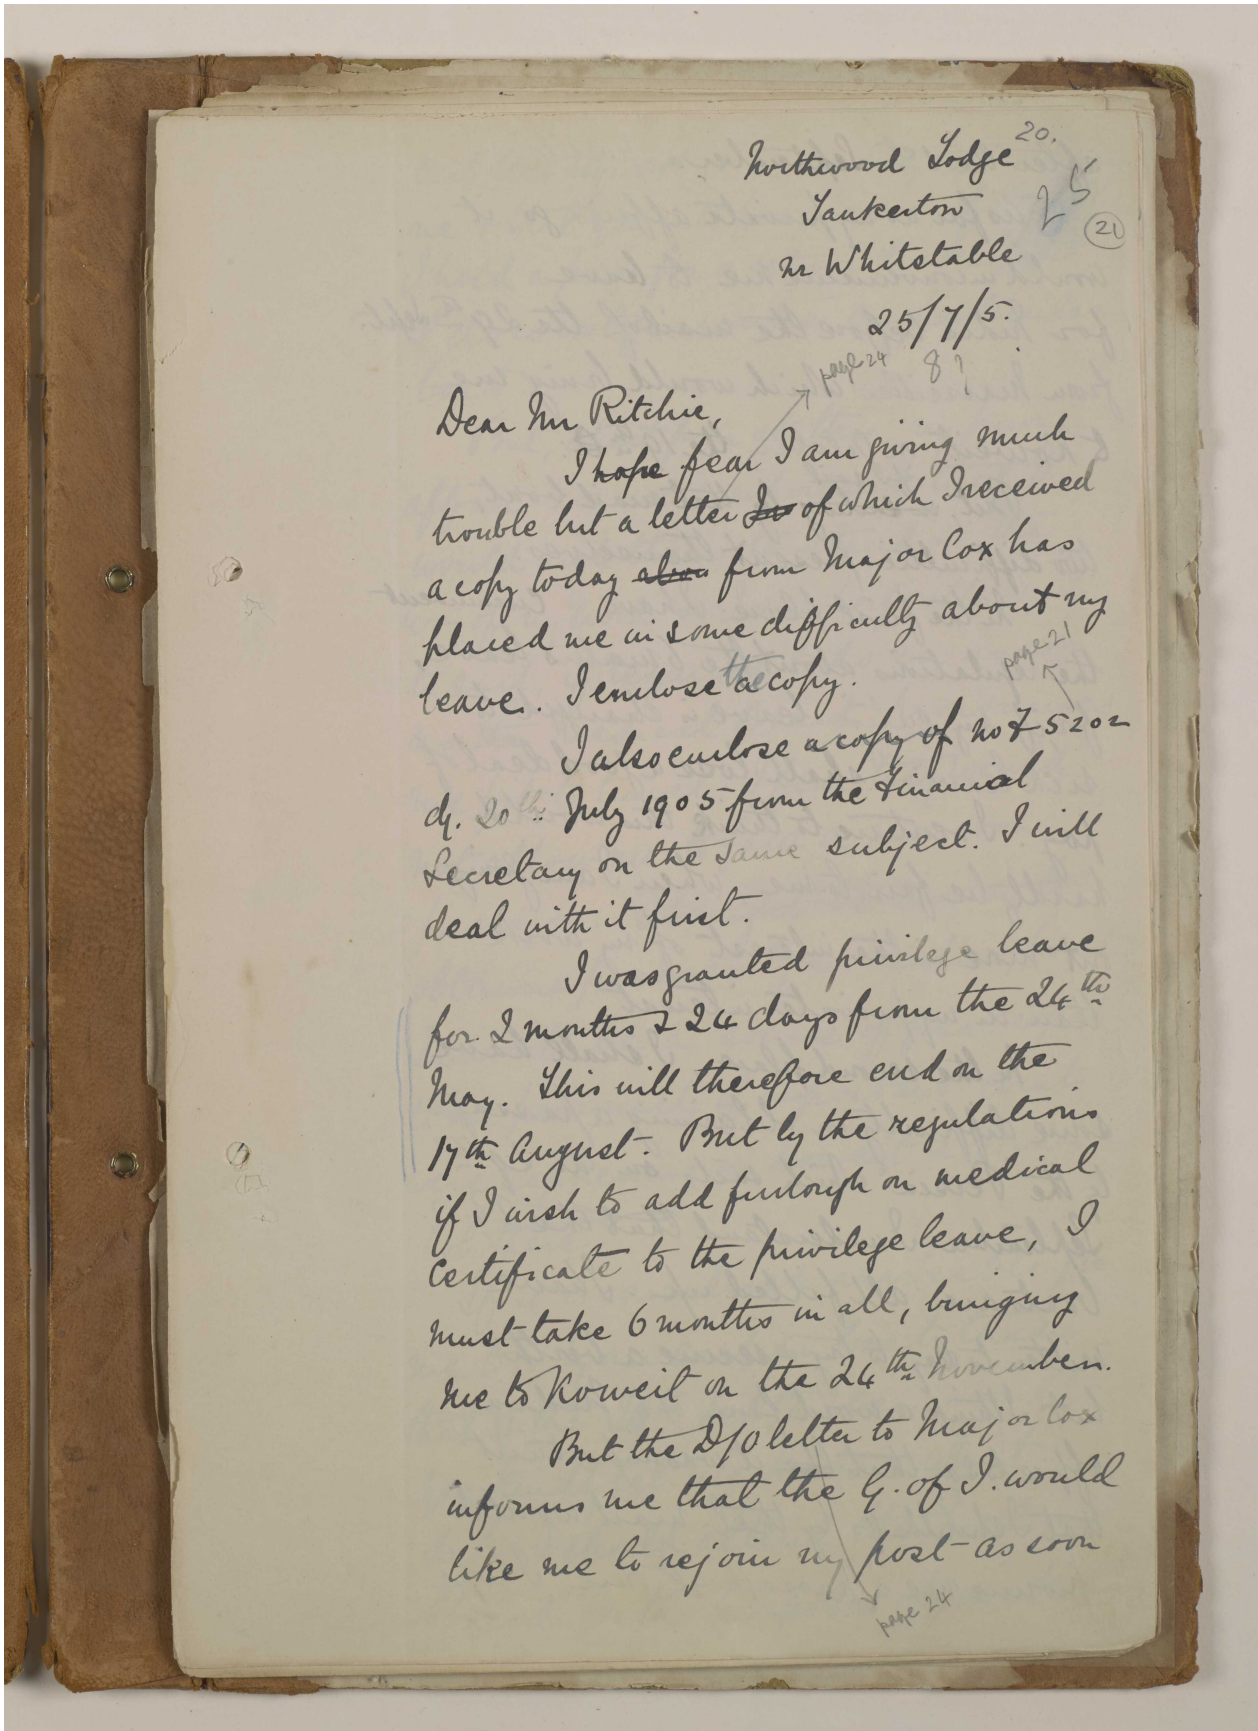 20.
Northwood Lodge
25
Tankerton
21
nr Whitstable
25/7/5.
page 24
8?
Dear Mr Ritchie,
I hope fear I am giving much
trouble but a letter of which I received
a copy today from Major Cox has
placed me in some difficulty about my
page 21
leave. I enclose the a copy.
I also enclose a copy of no F 5202
d/. 20th July 1905 from the Financial
Secretary on the same subject. I will
deal with it first.
I was granted privilege leave
for 2 months & 24 days from the 24th
May. This will therefore end on the
17th August. But by the regulations
if I wish to add furlough on medical
certificate to the privilege leave, I
must take 6 months in all, bringing
me to Koweit on the 24th November.
But the D/O letter to Major Cox
informs me that the G. of I. would
like me to rejoin my post as soon
page 24